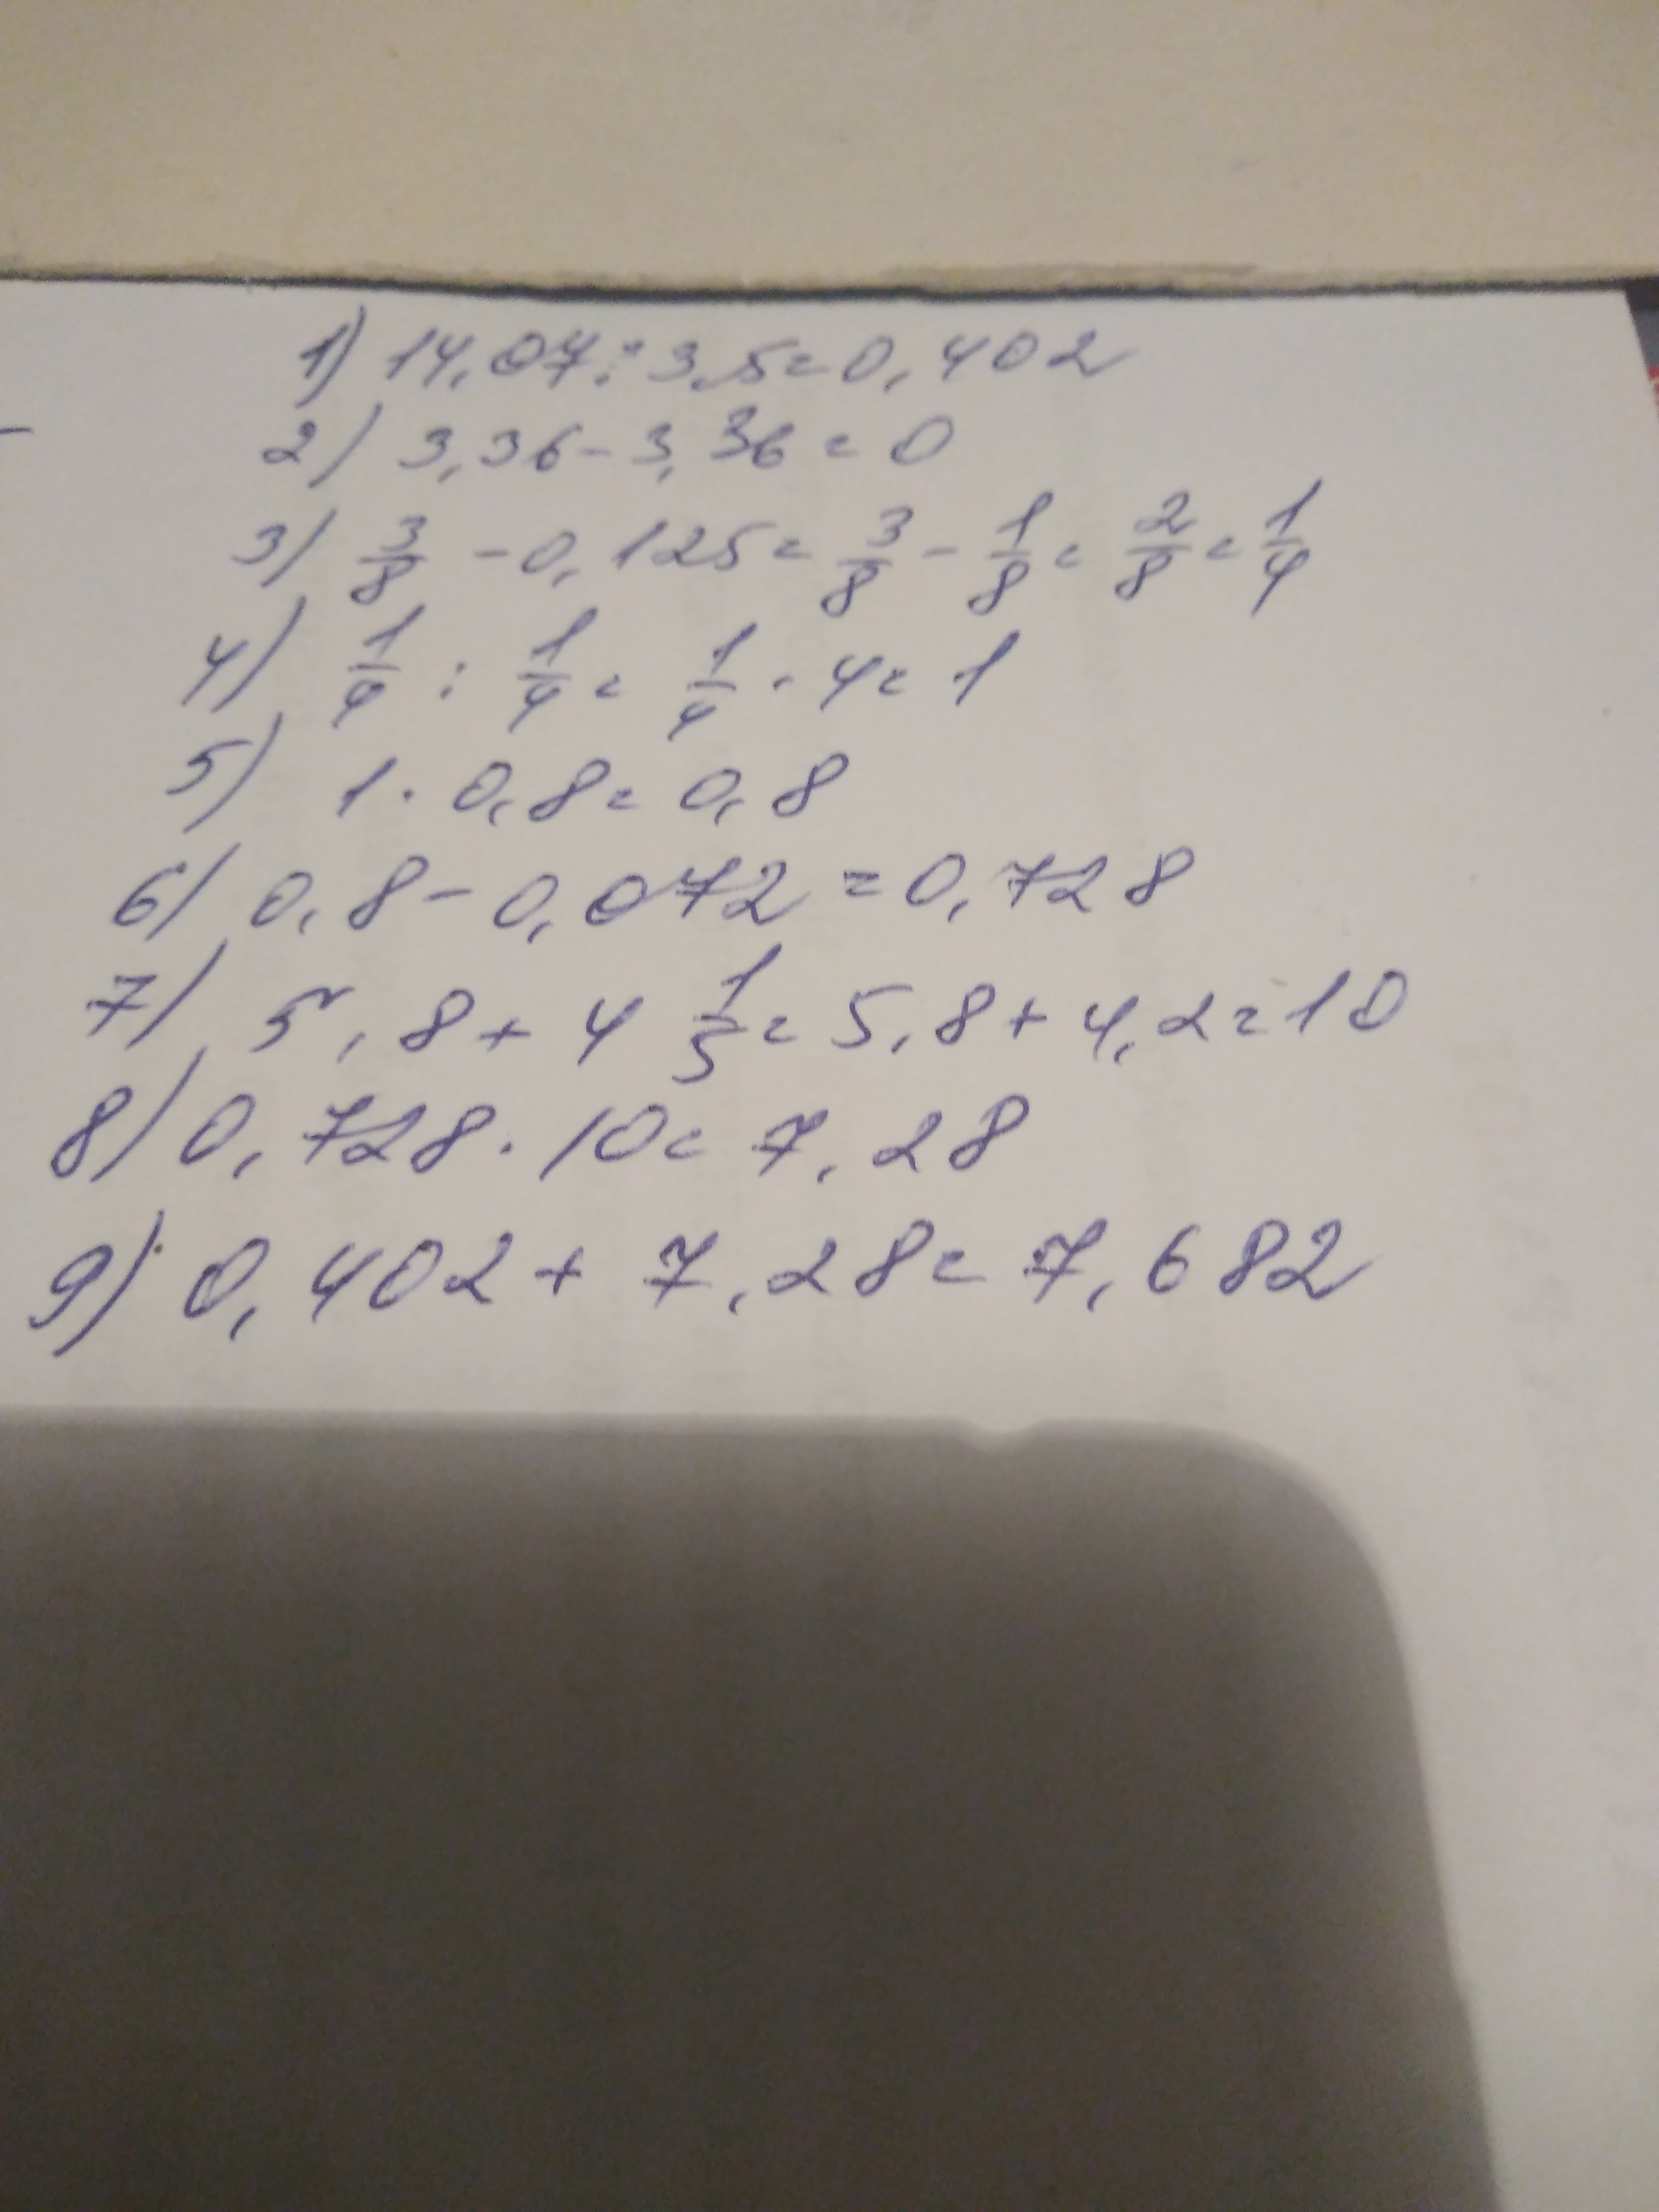 1) 14,07:3,5=0,402
2) 3,36-3,36=0
3) 3/8-0,125=3/8-1/8=2/8=1/4
4) 1/4:1/4=1/4·4=1
5) 1·0,8=0,8
6) 0,8-0,072=0,728
7) 5,8+4 1/5=5,8+4,2=10
8) 0,728·10=7,28
9) 0,402+7,28=7,682